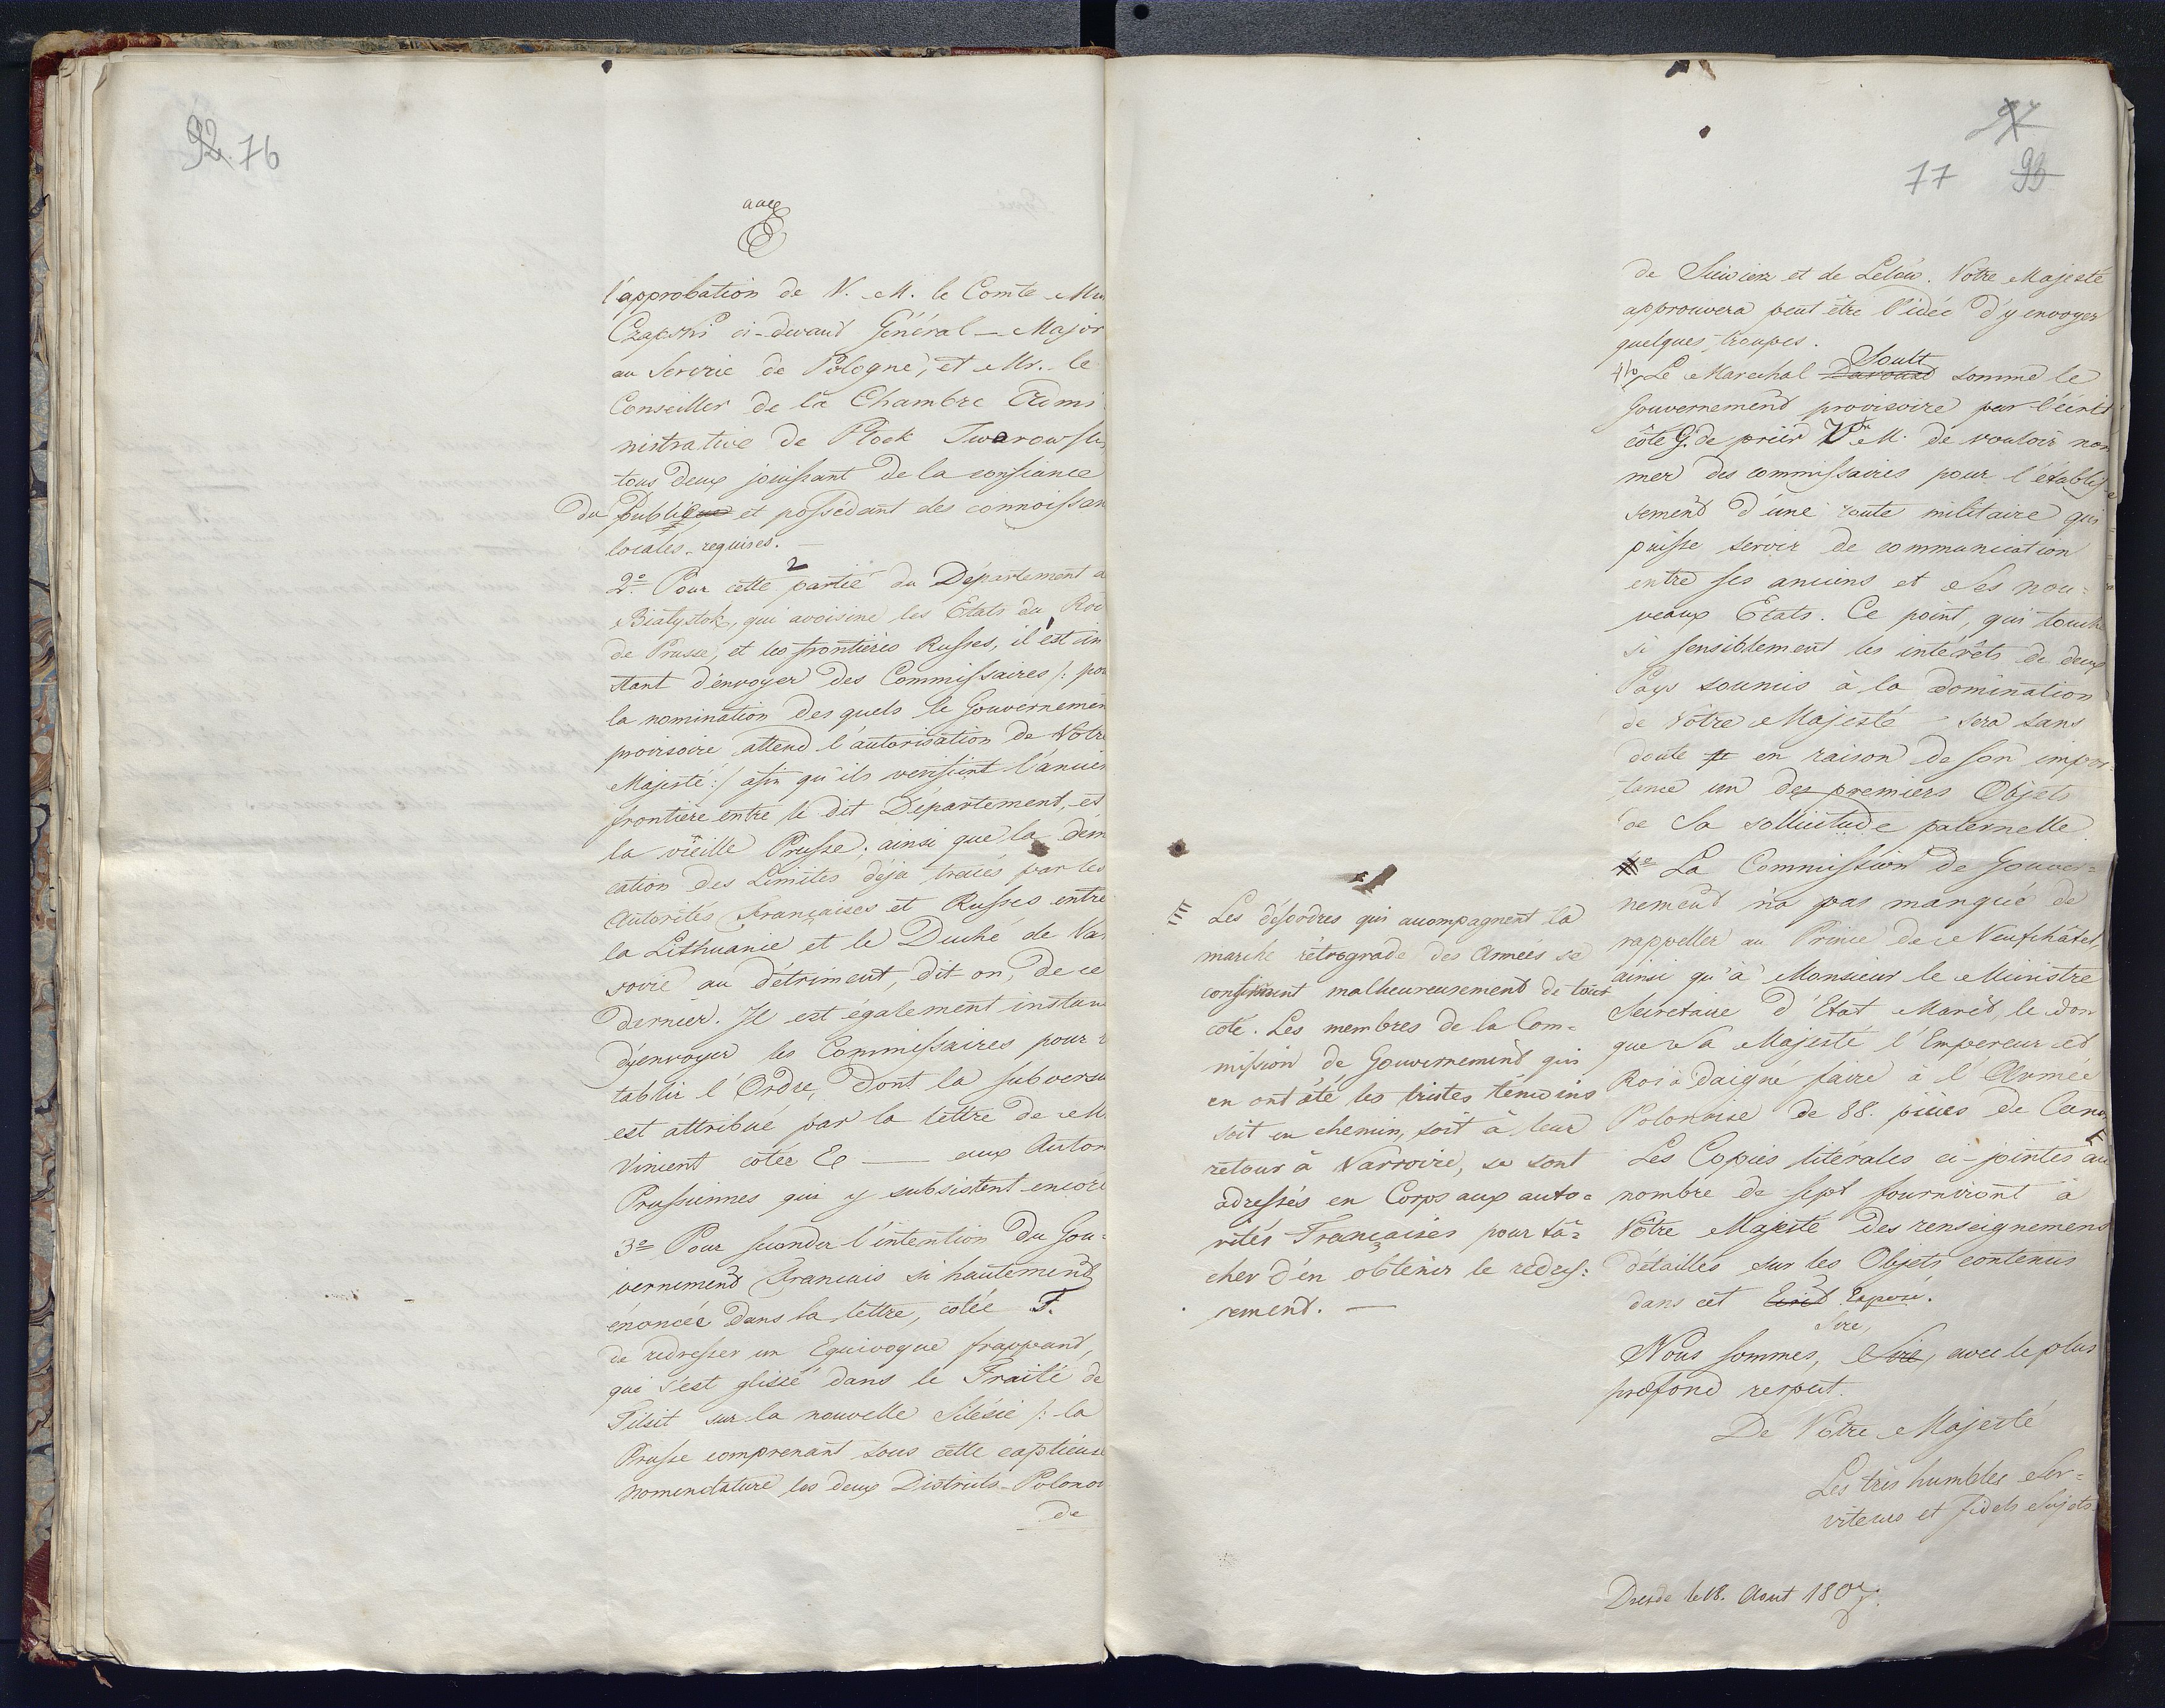 92. 76
avec
E
l'approbation de V. M. le Comte
Czapski ci-devant Général-Major
au Service de Pologne, et Mr. le
Conseiller de la Chambre Admi
nistrative de Plock
tous deux jouissant de la confiance
du publique et possédant des connoissan
locales requises. —
2
2º Pour cette partie du Département
Bialystok, qui avoisine les Etats du Roi
de Prusse, et les frontières Russes, il est in
stant d'envoyer des Commissaires /: pou
la nomination des quels le Gouvernemen
provisoire attend l'autorisation de Votre
Majesté :/ afin qu'ils vérifient l'ancien
frontière entre le dit Département, et
la vieille Prusse; ainsi que la dém
cation des Limites déja tracés par les
Autorités Françaises et Russes entre
la Lithuanie et le Duché de Var
sovie au détriment, dit on, de ce
dernier. Il est également instan
d'envoyer les Commissaires pour
tablir l'Ordre, dont la subversi
est attribué par la lettre de M
Vincent cotée E — aux Autor
Prussiennes qui y subsistent encore
3º Pour seconder l'intention du Gou-
vernement Francais si hautement
énoncée dans la lettre, cotée F.
de redresser un Equivoque frappant,
qui s'est glissé dans le Traité de
Tilsit sur la nouvelle Silésie /: la
Prusse comprenant sous cette captieuse
nomenclature les deux Districts Polonois
de
77 93
de Siewierz et de Lelów. Votre Majesté
approuvera peut être l'idée d'y envoyer
quelques troupes.
Soult
4to Le Marechal Davoust somme le
Gouvernement provisoire par l'écrit
côté G. de prier V. M. de vouloir nom
mer des commissaires pour l'établis
sement d'une route militaire qui
puisse servir de communication
entre ses anciens et Ses nou=
veaux Etats. Ce point, qui touche
si sensiblement les intérêts de deux
Pays soumis à la domination
de Votre Majesté sera sans
doute en raison de son impor=
tance un des premiers Objets
de Sa sollicitude paternelle.
La Commission de Gouver=
nement n'a pas manqué de
rappeller au Prince de Neufchâtel
ainsi qu'à Monsieur le Ministre
Secretaire d'Etat Maret, le don
que Sa Majesté l'Empereur et
Roi a daigné faire à l'Armée
Polonaise de 88. pièces de Canon
Les Copies litérales ci-jointes au
nombre de sept fourniront à
Votre Majesté des renseignemens
détaillés sur les Objets contenus
dans cet Ecrit Exposé.
Sire,
Nous sommes, Sire, avec le plus
profond respect.
De Votre Majesté
Les très humbles Ser=
viteurs et fidels Sujets
Les désordres qui accompagnent la
marche rétrograde des Armées se
malheureusement de tout
coté. Les membres de la Com=
mission de Gouvernement qui
en ont été les tristes témoins
soit en chemin, soit à leur
retour à Varsovie, se sont
adressés en Corps aux auto=
rités Françaises pour tâ=
cher d'en obtenir le redres=
sement. —
Dresde le 18. Aout 1807.